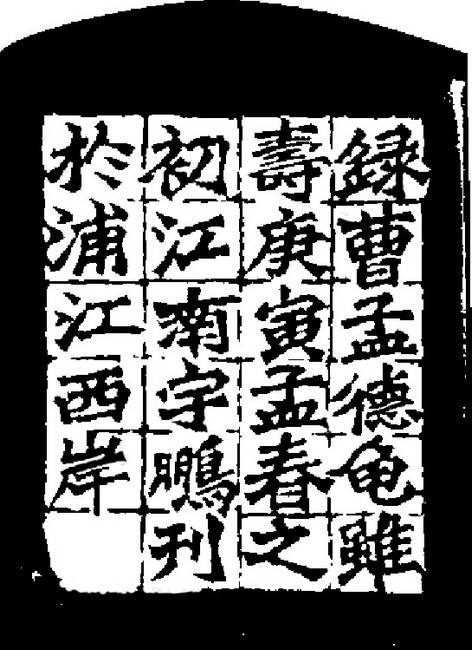 録曹孟德龟雖
壽庚寅孟春之
初江南宇鵬刊
於浦江西岸